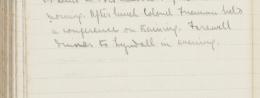 morning. After lunch Colonel Freeman held
a conference on training. Farewell
dinner to Lyndall in evening.